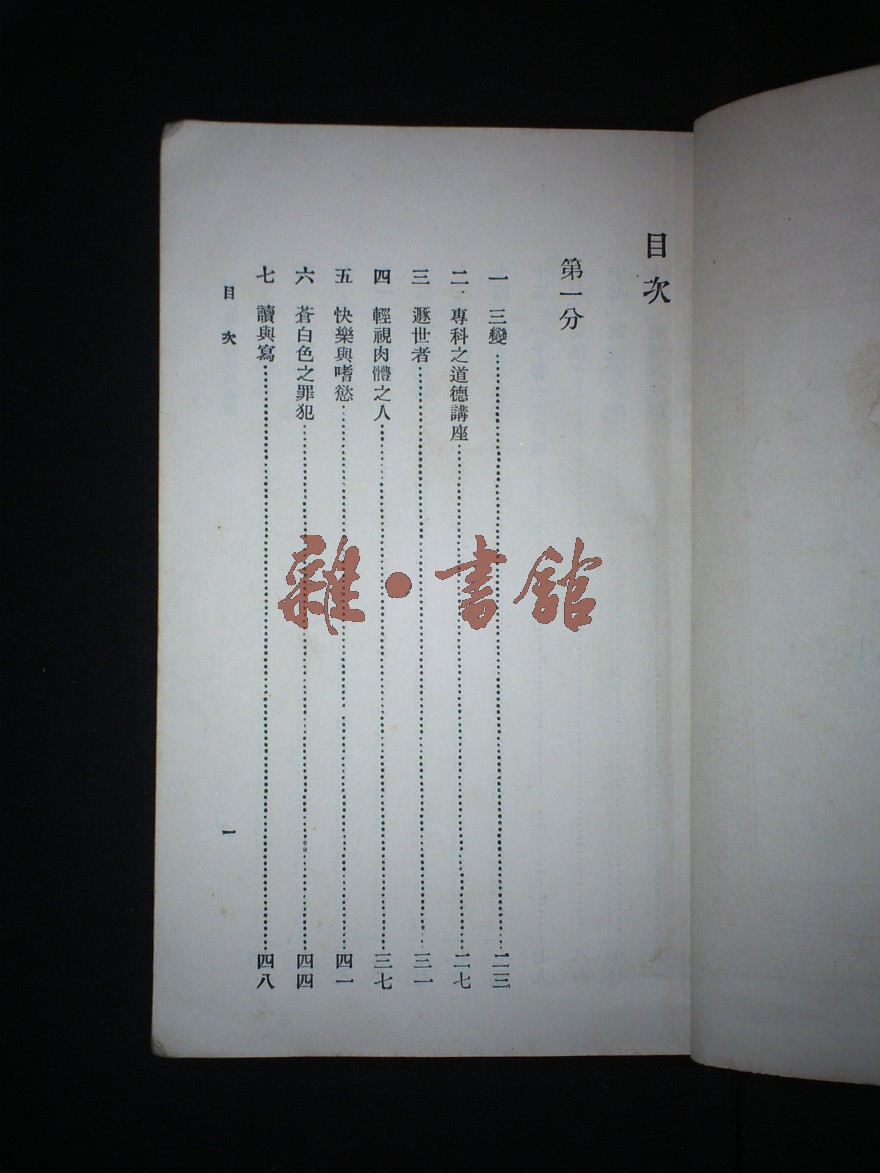 目次
第一分
一 三變……二三
二 專科之道德講座……二七
三 遯世者……三一
四 輕視肉體之人……三七
五 快樂與嗜慾……四一
六 蒼白色之罪犯……四四
七 讀與寫……四八
目次 一
雜·書館